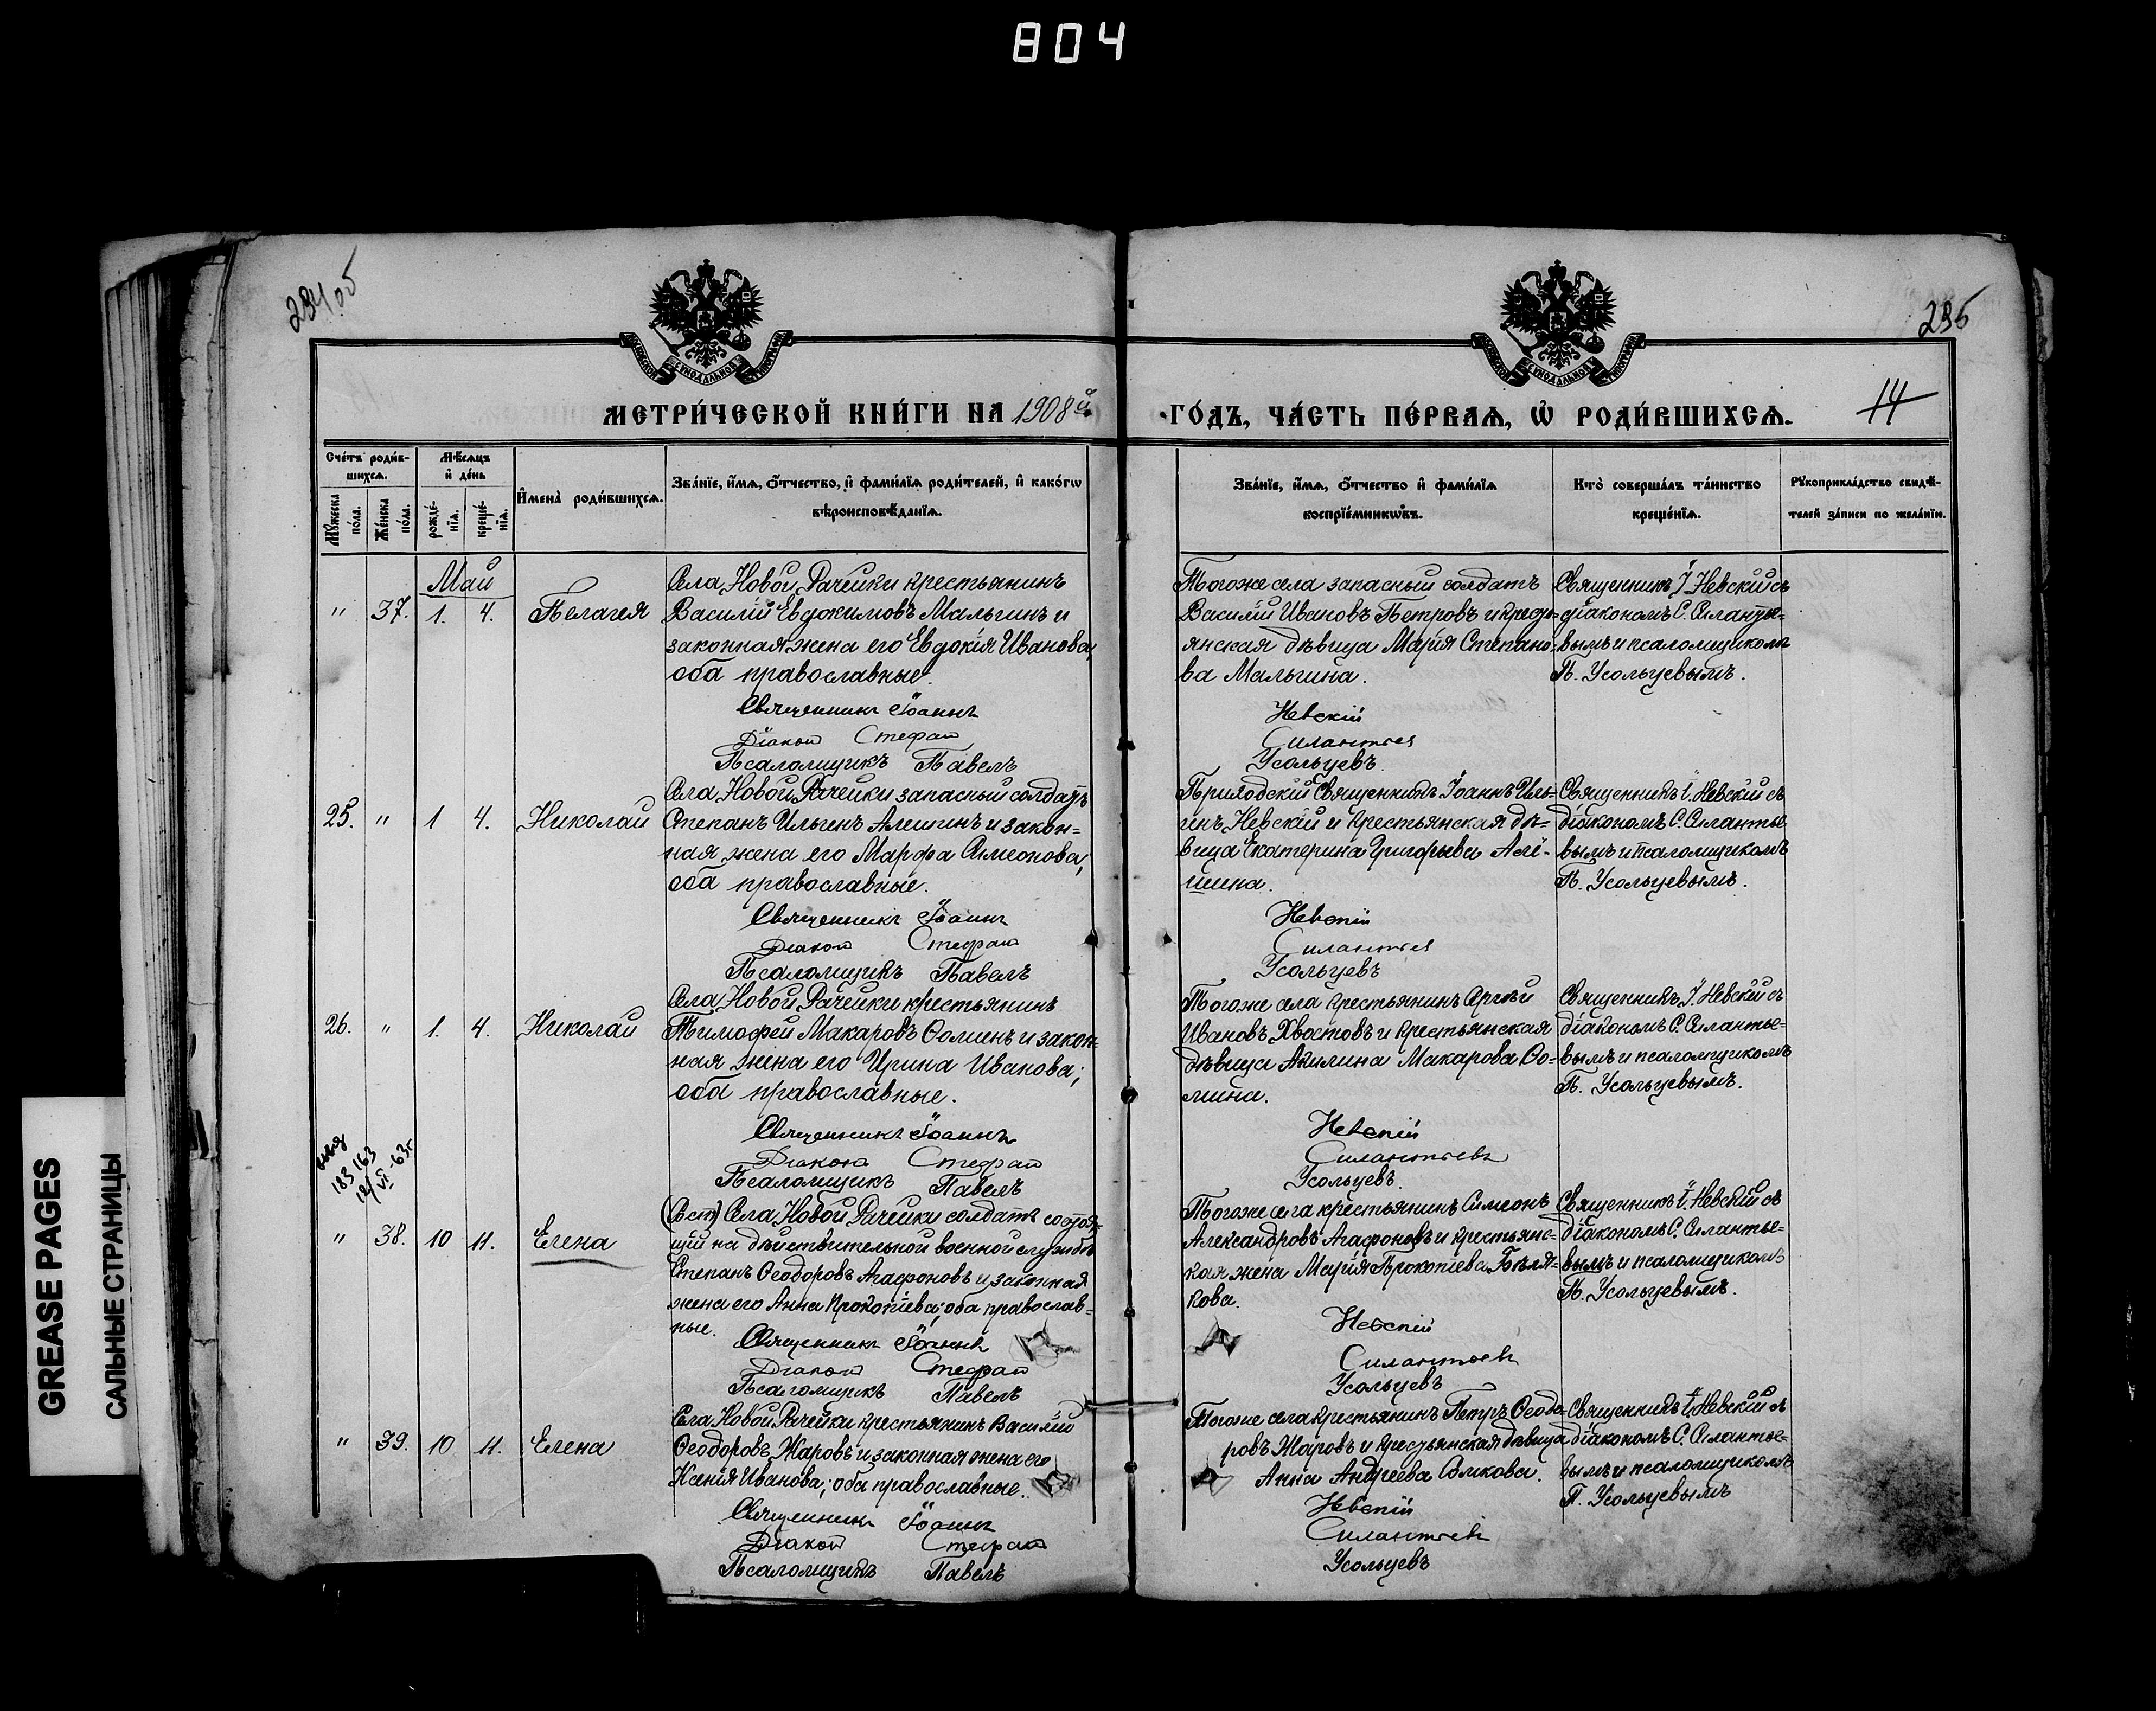 804
294об
295
МОСКОВСКОЙ СѴНОДАЛЬНОЙ ТИПОГРАФІИ
МОСКОВСКОЙ СѴНОДАЛЬНОЙ ТИПОГРАФІИ
МЕТРИ́ЧЕСКОЙ КНИ́ГИ НА 1908й
ГО́ДЪ, ЧА́СТЬ ПЕ́РВАѦ, Ѡ҆ РОДИ́ВШИХСѦ.
14
Сче́тъ роди́в-
шихсѧ.
Мꙋ́жеска по́ла.
Же́нска по́ла.
Мѣ́сѧцъ
и҆ де́нь
рожде́-
нїѧ.
креще́-
нїѧ.
И҆мена̀ роди́вшихсѧ.
Зва́нїе, и҆́мѧ, ѻ҆́тчество, и҆ фами́лїѧ роди́телей, и҆ како́гѡ
вѣроисповѣ́данїѧ.
Зва́нїе, и҆́мѧ, ѻ҆́тчество и҆ фами́лїѧ
воспрїе́мникѡвъ.
Кто̀ соверша́лъ та́инство
креще́нїѧ.
Рꙋкоприкла́дство свидѣ́-
телей за́писи по жела́нїю.
Май
" 37. 1. 4. Пелагея
Села Новой Рачейки крестьянинъ
Василій Евдокимовъ Малыгинъ и
законная жена его Евдокія Иванова,
оба православные.
Священникъ Іоаннъ
Діакон Стефан
Псаломщикъ Павелъ
Тогоже села запасный солдатъ
Василій Ивановъ Петровъ и кресть-
янская дѣвица Марія Степано-
ва Малыгина.
Невскій
Силантьев
Усольцевъ.
Священникъ І. Невскій съ
діакономъ С. Силантье-
вымъ и псаломщикомъ
П. Усольцевымъ.
25. " 1 4. Николай
Села Новой Рачейки запасный солдатъ
Степанъ Ильинъ Алешинъ и закон-
ная жена его Марфа Симеонова,
оба православные.
Священникъ Іоаннъ
Діакон Стефан
Псаломщикъ Павелъ
Приходскій Священникъ Іоаннъ Иль-
инъ Невскій и крестьянская дѣ-
вица Екатерина Григорьева Алё-
шина.
Невскій
Силантьев
Усольцевъ
Священникъ І. Невскій съ
діакономъ С. Силантье
вымъ и псаломщикомъ
П. Усольцевымъ.
26. " 1. 4. Николай
Села Новой Рачейки крестьянинъ
Тимофей Макаровъ Ѳоминъ и закон-
ная жена его Ирина Иванова;
оба православные.
Священникъ Іоаннъ
Діакон Стефан
Псаломщикъ Павелъ
Тогоже села крестьянинъ Сергѣй
Ивановъ Хвостовъ и крестьянская
дѣвица Акилина Макарова Ѳо-
мина.
Невскій
Силантьевъ
Усольцевъ.
Священникъ І. Невскій съ
діакономъ С. Силантье-
вымъ и псаломщикомъ
П. Усольцевымъ.
183163
" 38. 10 11. Елена
Села Новой Рачейки солдатъ состоя-
щій на дѣйствительной военной службѣ
Степанъ Ѳеодоровъ Агафоновъ и законная
жена его Анна Прокопіева; оба православ-
ные.
Священникъ Іоаннъ
Діакон Стефан
Псаломщикъ Павелъ
Тогоже села крестьянинъ Симеонъ
Александровъ Агафоновъ и крестьянс-
кая жена Марія Прокопіева Бѣля-
кова.
Невскій
Силантьевъ
Усольцевъ
Священникъ І. Невскій съ
діакономъ С. Силантье-
вымъ и псаломщикомъ
П. Усольцевымъ.
" 39. 10 11. Елена
Села Новой Рачейки крестьянинъ Василій
Ѳеодоровъ Жаровъ и законная жена его
Ксенія Иванова; оба православные.
Священникъ Іоаннъ
Діакон Стефан
Псаломщикъ Павелъ
Тогоже села крестьянинъ Петръ Ѳеодо-
ровъ Жаровъ и крестьянская дѣвица
Анна Андреева
Невскій
Силантьевъ
Усольцевъ
Священникъ І. Невскій съ
діакономъ С. Силантье-
вымъ и псаломщикомъ
П. Усольцевымъ
GREASE PAGES
САЛЬНЫЕ СТРАНИЦЫ